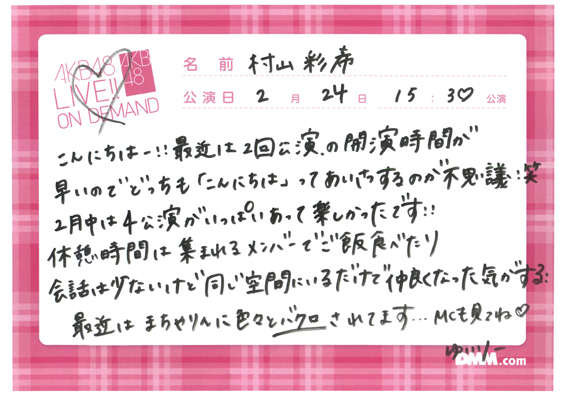 AKB48
LIVE!!
ON DEMAND
AKB
48
名前 村山彩希
公演日 2月24日 15:30公演
こんにちはー!!最近は2回公演の開演時間が
早いのでどっちも「こんにちは」ってあいさつするのが不思議!笑
2月中は4公演がいっぱいあって楽しかったです!!
休憩時間は集まれるメンバーでご飯食べたり
会話は少ないけど同じ空間にいるだけで仲良くなった気がする:
最近はまちゃりんに色々とバクロされてます…MCも見てね♡
ゆいりー
DMM.com